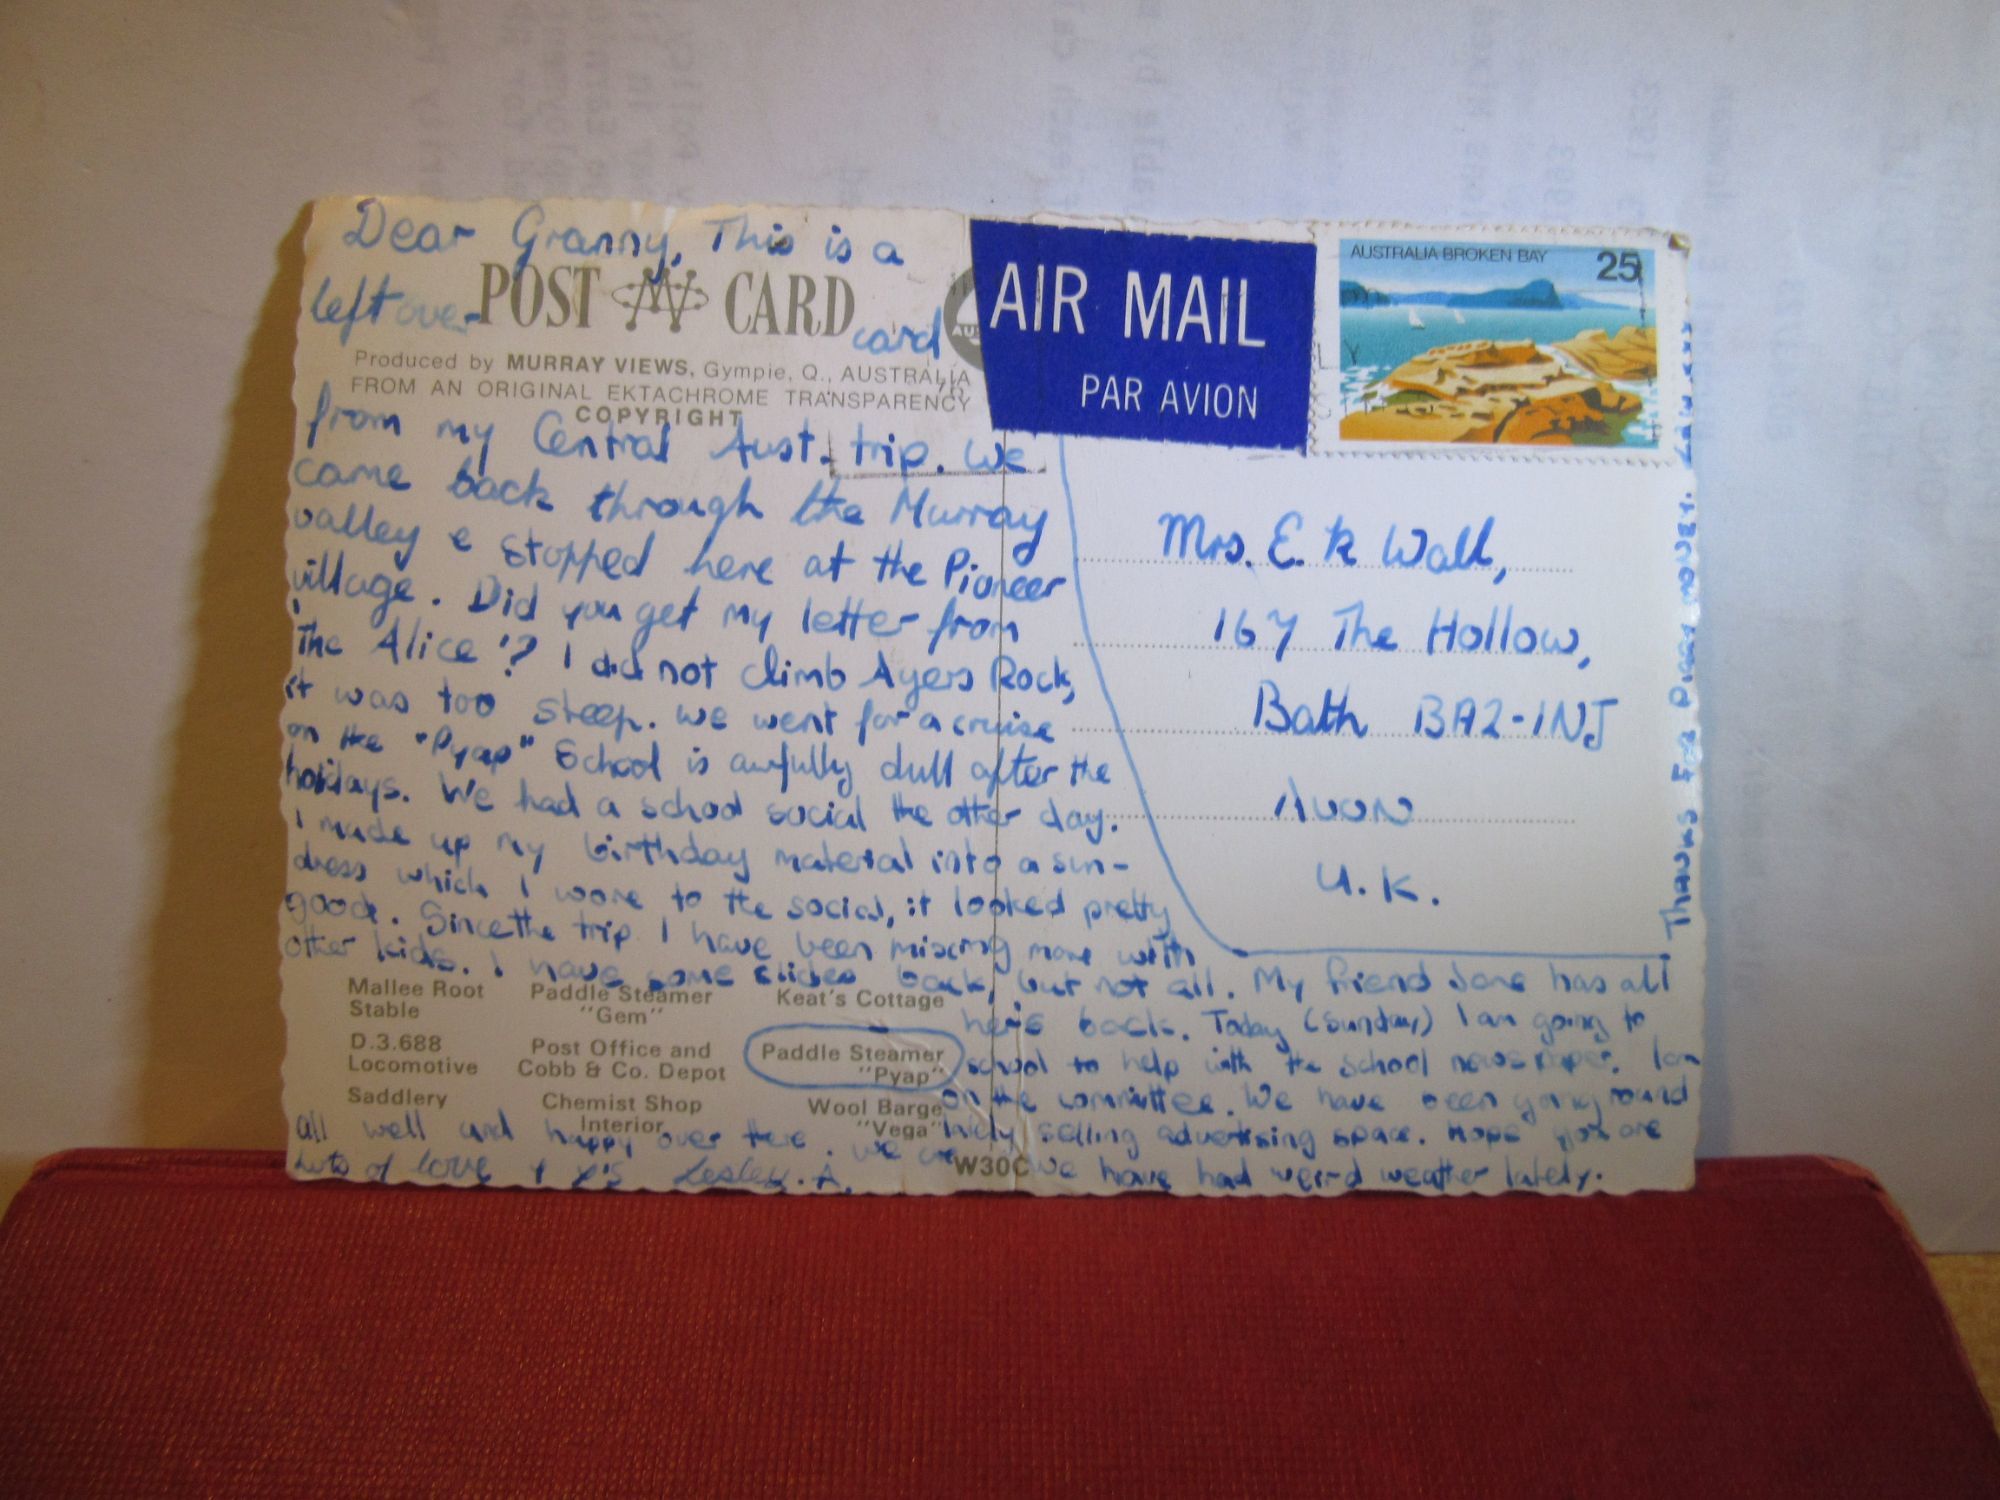 Dear Granny, This is a
left over
POST CARD
card
Produced by MURRAY VIEWS, Gympie, Q., AUSTRALIA
FROM AN ORIGINAL EKTACHROME TRANSPARENCY
COPYRIGHT
from my Central Aust. trip. We
came back through the Murray
valley & stopped here at the Pioneer
village. Did you get my letter from
'The Alice'? I did not climb Ayers Rock,
it was too steep. We went for a cruise
on the "Pyap" School is awfully dull after the
holidays. We had a school social the other day.
I made up my birthday material into a sun-
dress which I wore to the social, it looked pretty
good. Since the trip I have been mixing more with
other kids. I have some slides back, but not all. My friend Jane has all
her's back. Today (Sunday) I am going to
school to help with the school newspaper. I am
on the committee. We have been going round
selling advertising space. Hope you are
all well and happy over there. We are
We have had weird weather lately.
Lots of love & X's Lesley. A.
Mallee Root Stable
Paddle Steamer "Gem"
Keat's Cottage
D.3.688 Locomotive
Post Office and Cobb & Co. Depot
Paddle Steamer "Pyap"
Saddlery
Chemist Shop Interior
Wool Barge "Vega"
W30C
AIR MAIL
PAR AVION
AUSTRALIA BROKEN BAY
25
Mrs. E. R Wall,
167 The Hollow,
Bath BA2-1NJ
AVON
U.K.
THANKS FOR